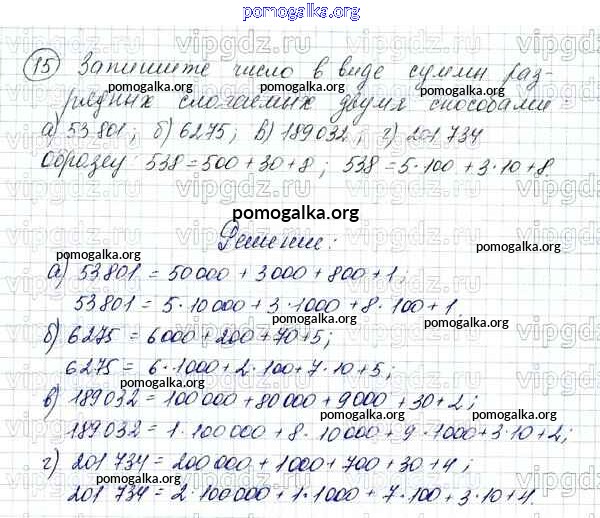 pomogalka.org
15 Запишите число в виде суммы раз-
рядных слагаемых двумя способами
а) 53 801; б) 6275; в) 189 032; г) 201 734
образец: 538 = 500 + 30 + 8; 538 = 5·100 + 3·10 + 8.
vipgdz.ru
pomogalka.org
Решение:
а) 53801 = 50000 + 3000 + 800 + 1;
53801 = 5·10000 + 3·1000 + 8·100 + 1.
б) 6275 = 6000 + 200 + 70 + 5;
6275 = 6·1000 + 2·100 + 7·10 + 5;
в) 189032 = 100000 + 80000 + 9000 + 30 + 2;
189032 = 1·100000 + 8·10000 + 9·1000 + 3·10 + 2;
г) 201 734 = 200000 + 1000 + 700 + 30 + 4;
201 734 = 2·100000 + 1·1000 + 7·100 + 3·10 + 4.
pomogalka.org